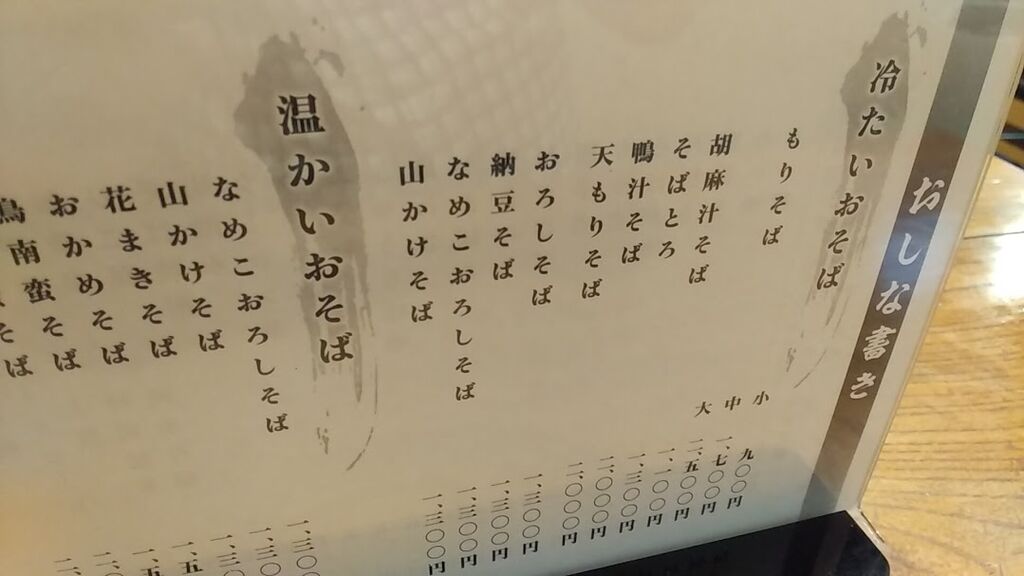 おしな書き
冷たいおそば
もりそば 小 九〇〇円
中 一、七〇〇円
大 二、五〇〇円
胡麻汁そば 一、一〇〇円
そばとろ 一、三〇〇円
鴨汁そば
天もりそば 二、〇〇〇円
おろしそば 一、三〇〇円
納豆そば 一、三〇〇円
なめこおろしそば 一、三〇〇円
山かけそば 一、三〇〇円
温かいおそば
なめこおろしそば 一、三〇〇
山かけそば 一、三〇
花まきそば 一、三〇
おかめそば 一、五
南蛮そば 一、五